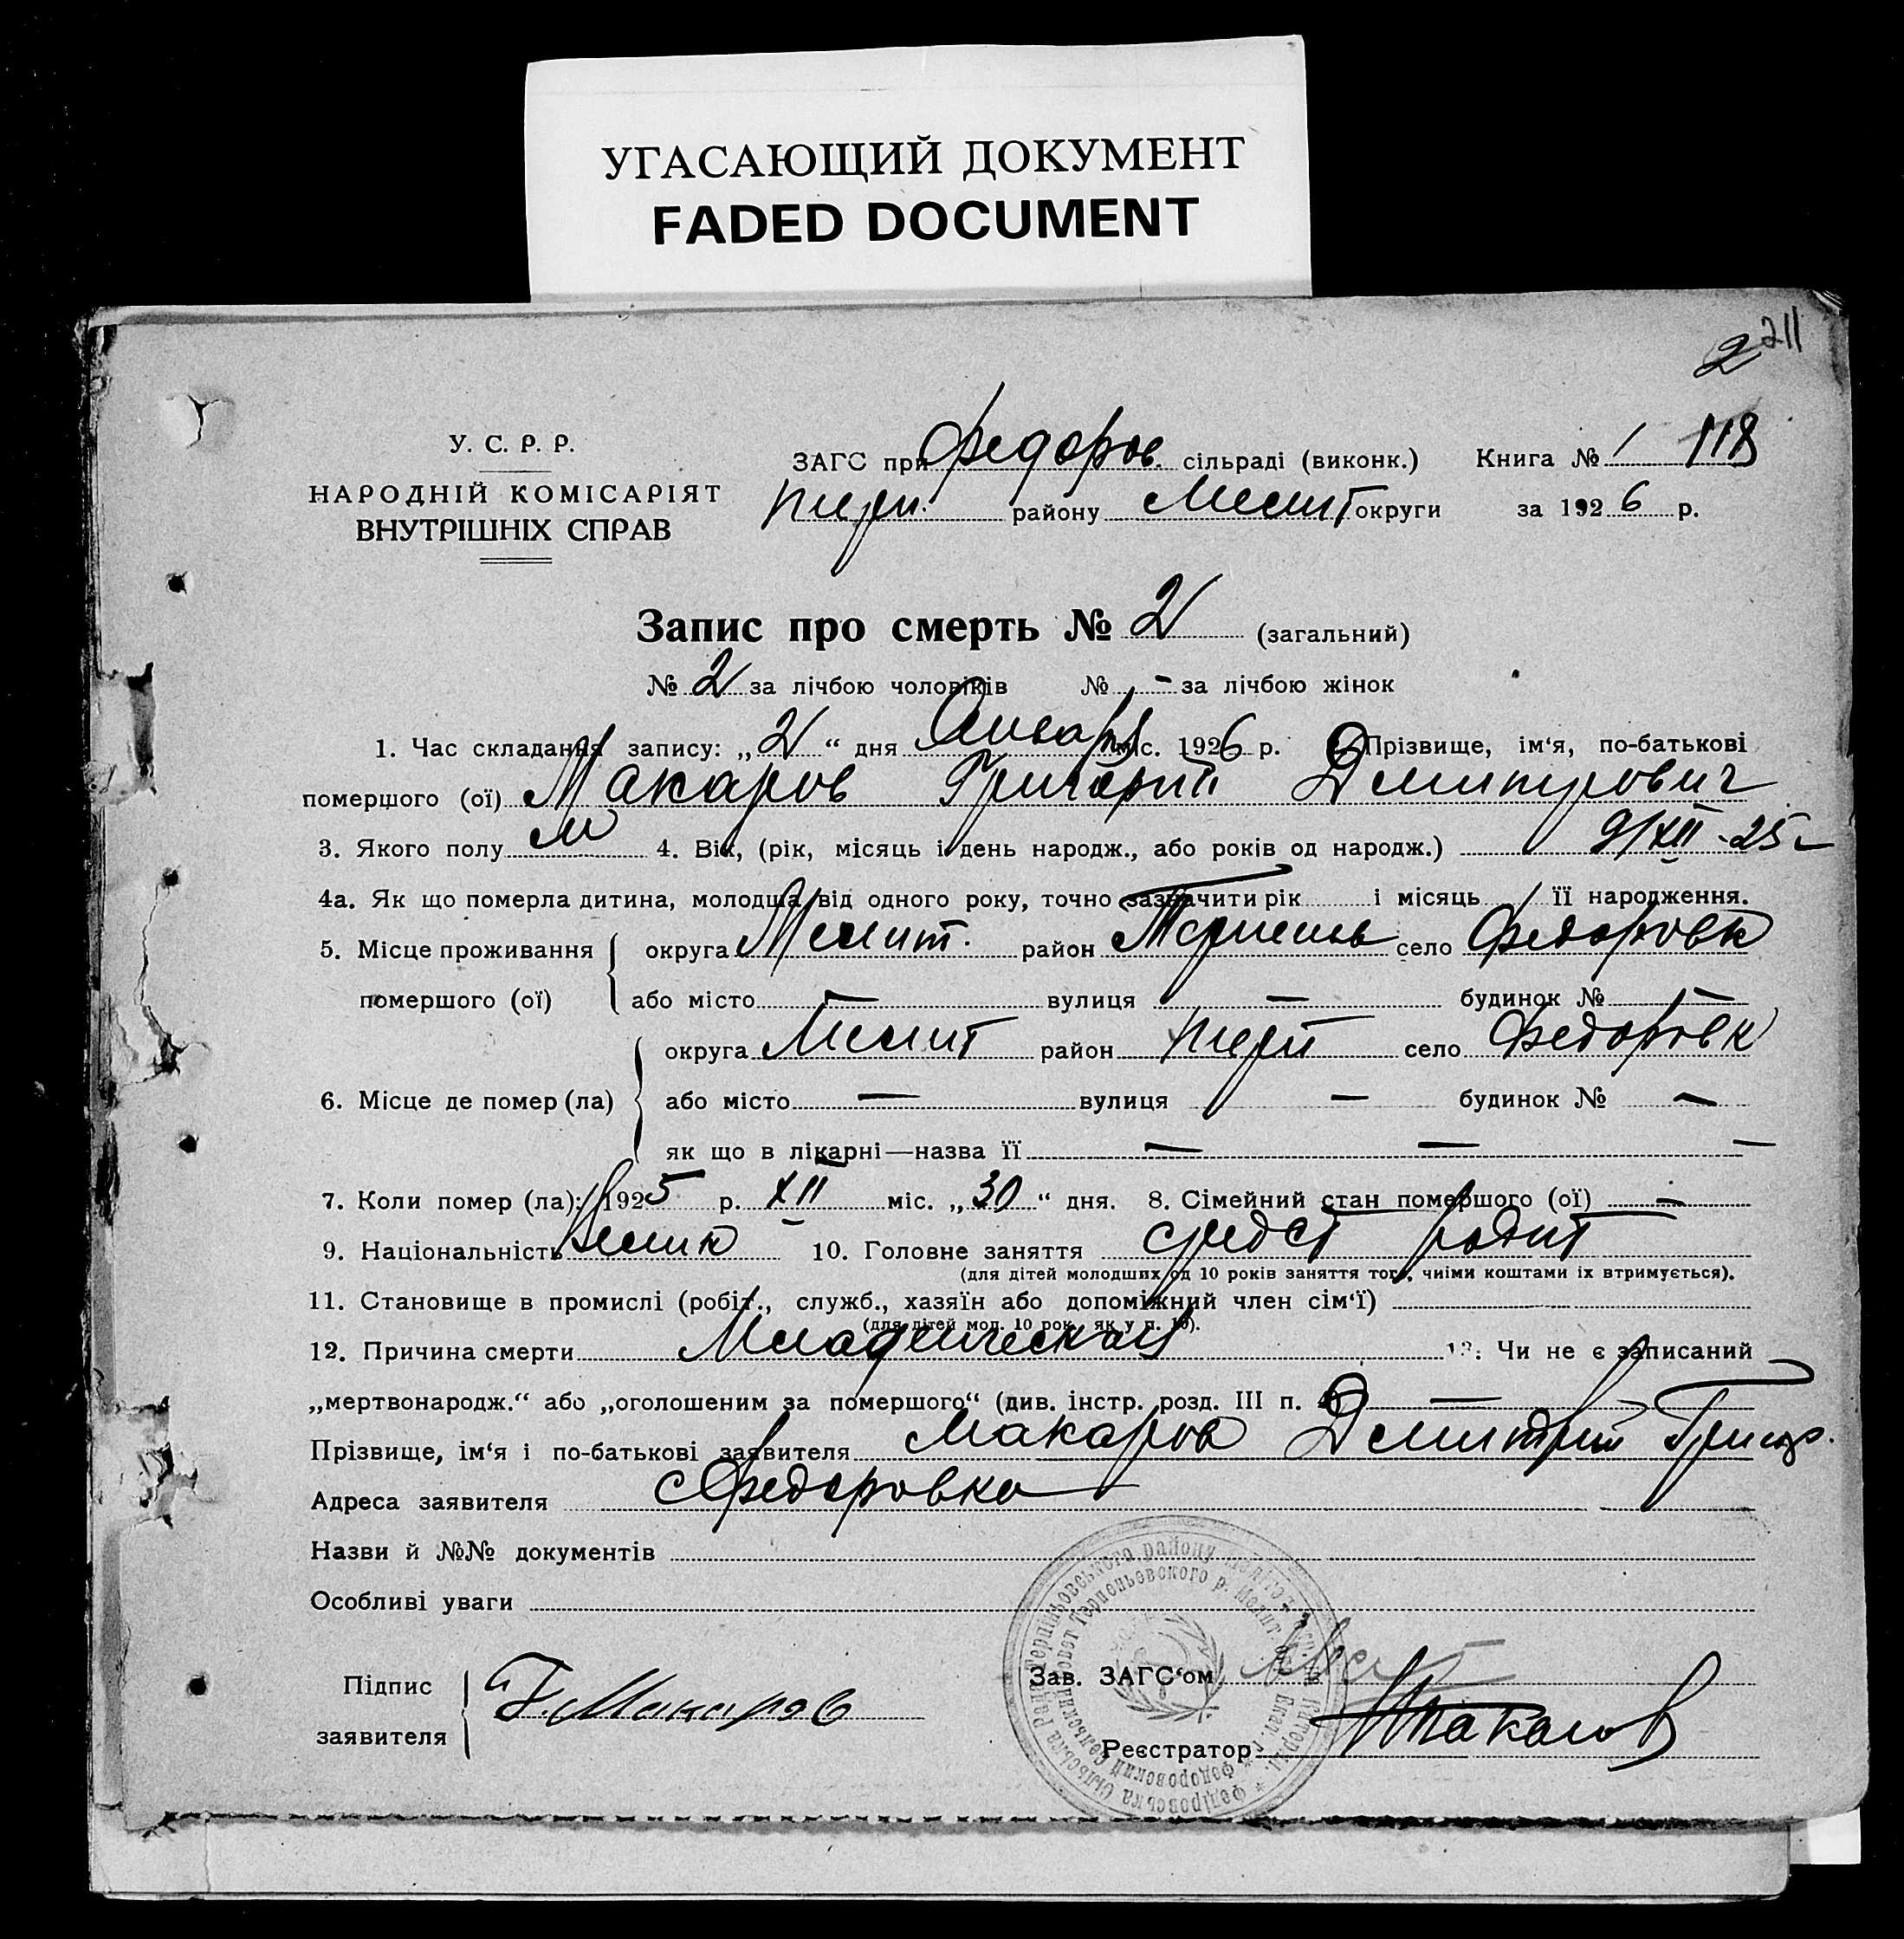 УГАСАЮЩИЙ ДОКУМЕНТ
FADED DOCUMENT
2 211
У. С. Р. Р.
НАРОДНІЙ КОМІСАРІЯТ
ВНУТРІШНІХ СПРАВ
ЗАГС при Федоров. сільраді (виконк.) Книга № 1 118
терп. району Мелит округи за 1926 р.
Запис про смерть № 2 (загальний)
№ 2 за лічбою чоловіків № - за лічбою жінок
1. Час складання запису: „2“ дня Января міс. 1926 р. 2 Прізвище, ім‘я, по-батькові
помершого (ої) Макаров Григорий Дмитрович
3. Якого полу м 4. Вік, (рік, місяць і день народж., або років од народж.) 9/XII-25 г
4а. Як що померла дитина, молодша від одного року, точно зазначити рік і місяць її народження.
5. Місце проживання округа Мелит. район Терпень село Федоровк
помершого (ої) або місто — вулиця — будинок № —
округа Мелит район терп село Федоровк
6. Місце де помер (ла) або місто — вулиця — будинок № —
як що в лікарні—назва її — — —
7. Коли помер (ла): 1925 р. XII міс. „30“ дня. 8. Сімейний стан помершого (ої) —
9. Національність 10. Головне заняття средст родит
(для дітей молодших од 10 років заняття того, чиїми коштами їх втримується).
11. Становище в промислі (робіт., служб., хазяїн або допоміжний член сім‘ї)
(для дітей мол. 10 рок. як у п. 10).
12. Причина смерти Младенческая 13. Чи не є записаний
„мертвонародж.“ або „оголошеним за помершого“ (див. інстр. розд. III п. —
Прізвище, ім‘я і по-батькові заявителя Макаров Дмитрий Григор.
Адреса заявителя с Федоровка
Назви й №№ документів
Особливі уваги
Підпис
заявителя Макаров
Зав. ЗАГС‘ом
Реєстратор